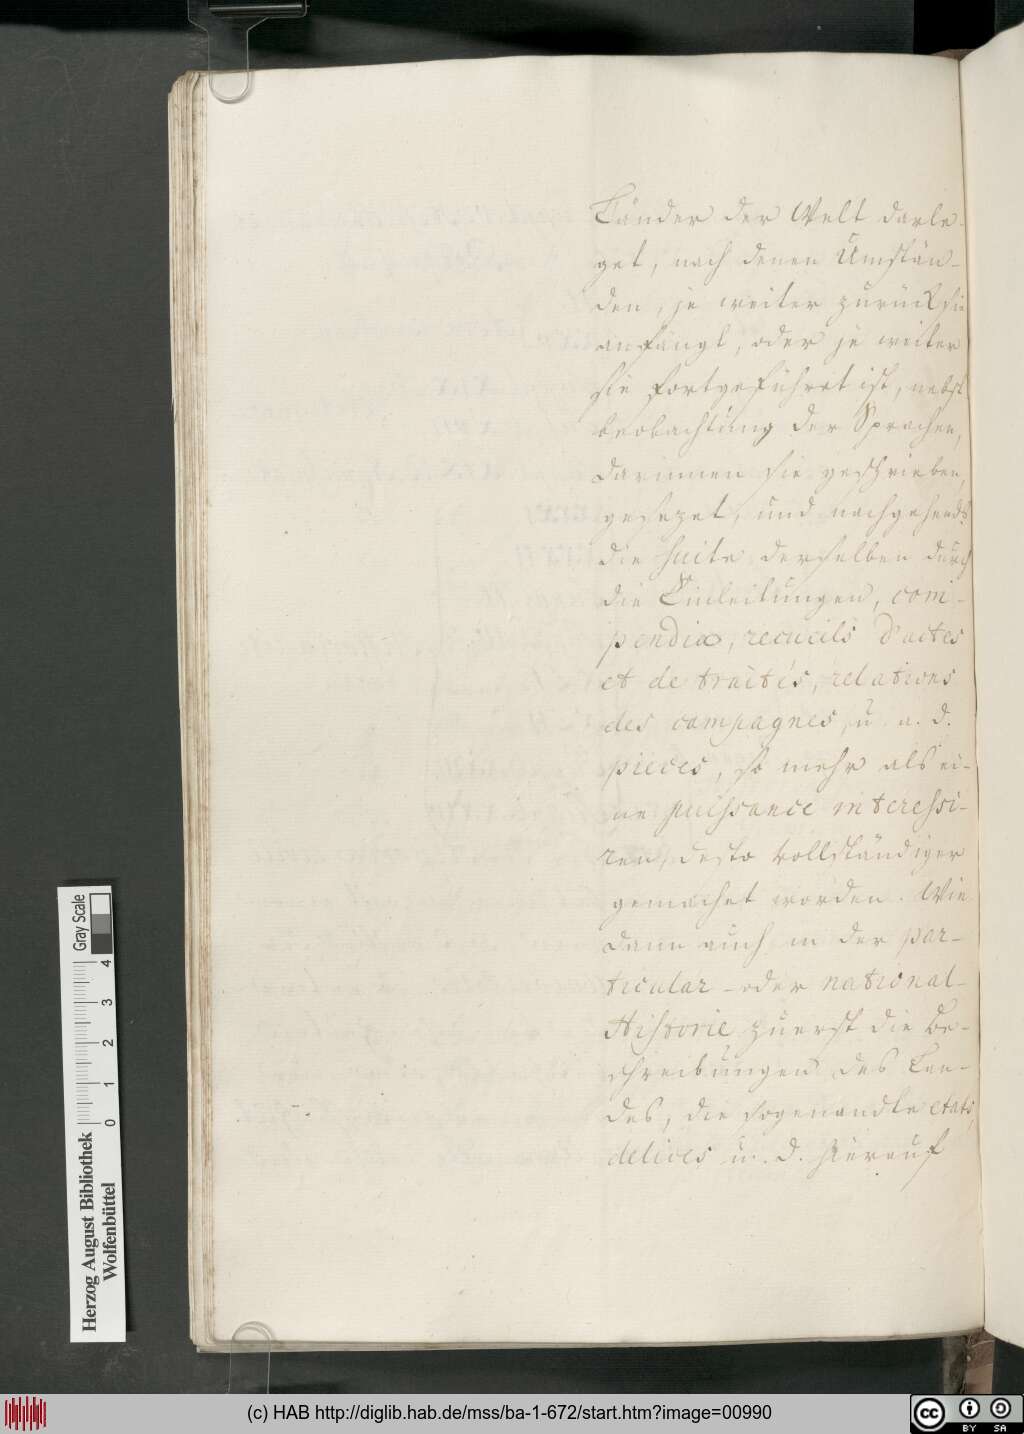 Länder der Welt darle-
get, nach denen Umstän-
den, je weiter zurück sie
anfängt, oder je weiter
sie fortgeführet ist, nebst
beobachtung der Sprachen,
darinnen sie geschrieben,
gesezet, und nachgehends
die suite derselben durch
die Einleitungen, com-
pendia, recueils d'actes
et de traités, relations
des campagnes, u. a. d.
pieces, so mehr als ei-
ne puissance interessi-
ren, desto vollständiger
gemachet worden. Wie
dann auch in der par-
ticular- oder national-
Historie zuerst die Be-
schreibungen des Lan-
des, die sogenandte etats,
delices u. d. hierauf
Gray Scale
0 1 2 3 4
Herzog August Bibliothek
Wolfenbüttel
(c) HAB http://diglib.hab.de/mss/ba-1-672/start.htm?image=00990
cc BY SA